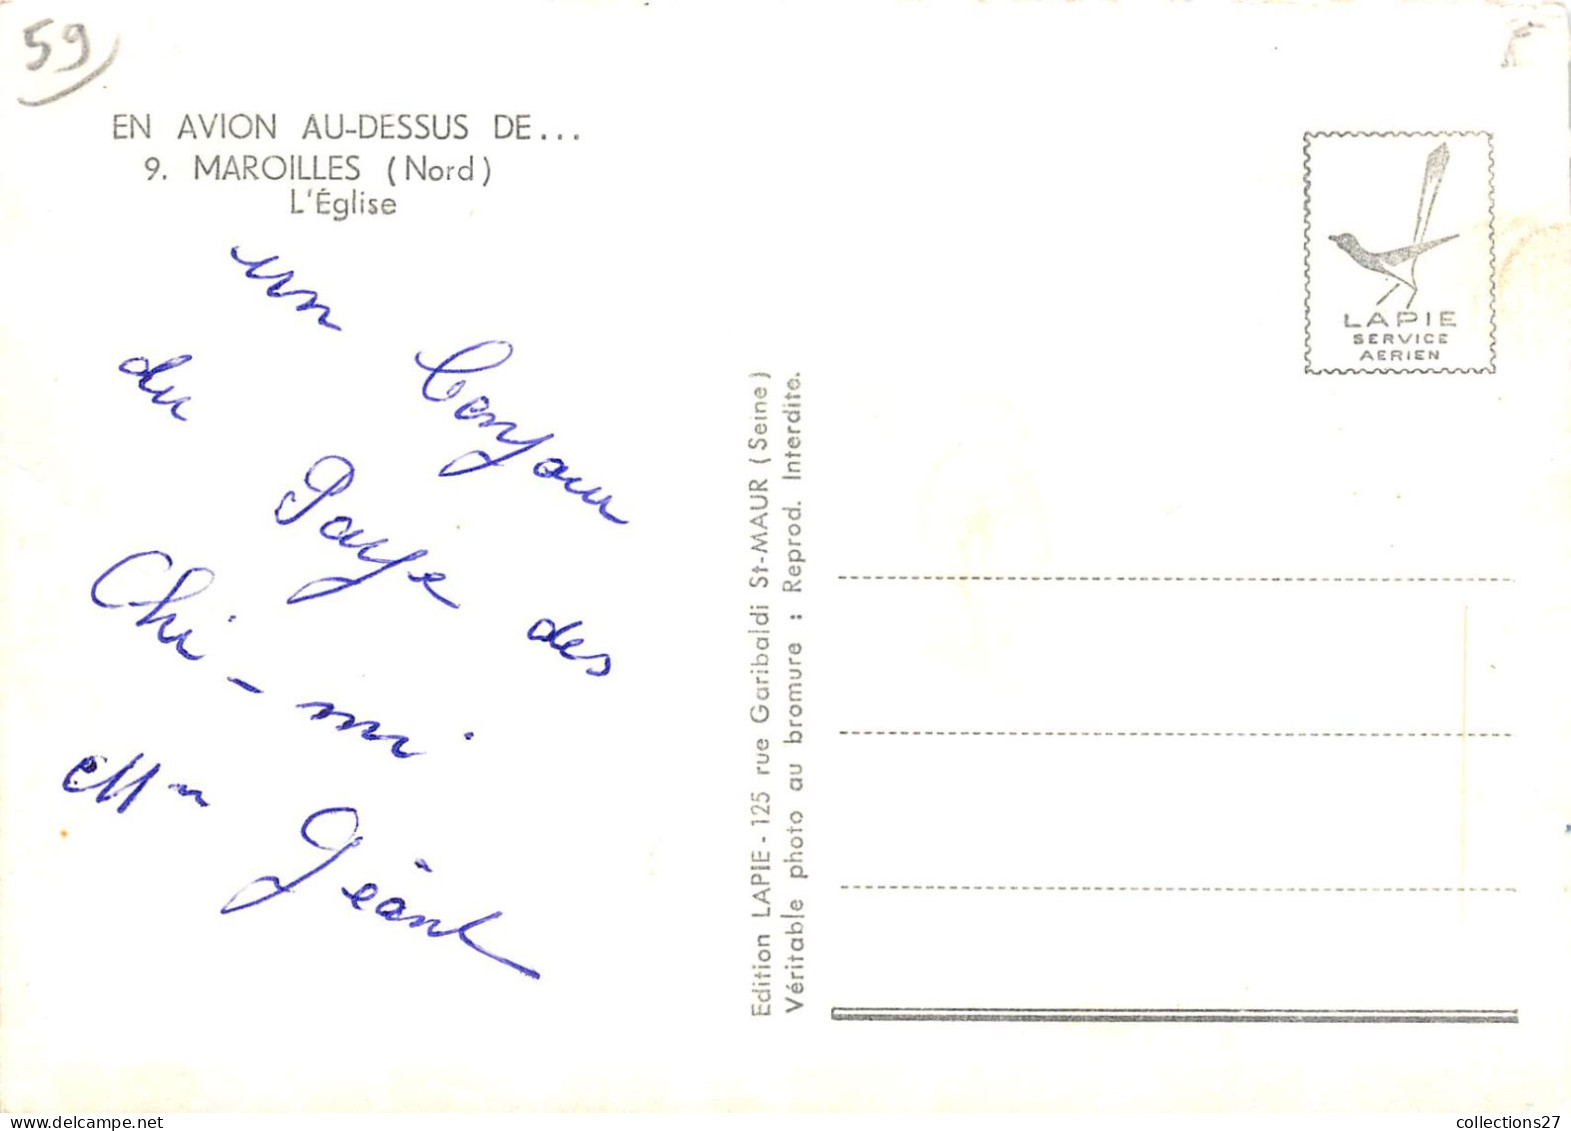 59
EN AVION AU-DESSUS DE...
9. MAROILLES (Nord)
L'Église
un Bonjour
du Paye des
Chi-mi
Géant
Edition LAPIE - 125 rue Garibaldi St-MAUR (Seine)
Véritable photo au bromure : Reprod. Interdite.
LAPIE
SERVICE
AERIEN
collections27